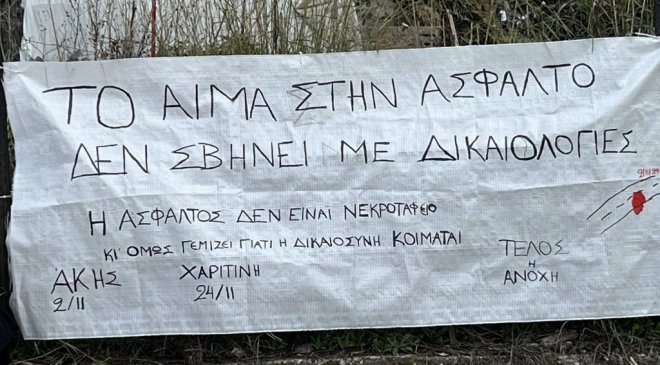 ΤΟ ΑΙΜΑ ΣΤΗΝ ΑΣΦΑΛΤΟ
ΔΕΝ ΣΒΗΝΕΙ ΜΕ ΔΙΚΑΙΟΛΟΓΙΕΣ
Η ΑΣΦΑΛΤΟΣ ΔΕΝ ΕΙΝΑΙ ΝΕΚΡΟΤΑΦΕΙΟ
ΚΙ' ΟΜΩΣ ΓΕΜΙΖΕΙ ΓΙΑΤΙ Η ΔΙΚΑΙΟΣΥΝΗ ΚΟΙΜΑΤΑΙ
ΑΚΗΣ
2/11
ΧΑΡΙΤΙΝΗ
24/11
ΤΕΛΟΣ
Η
ΑΝΟΧΗ